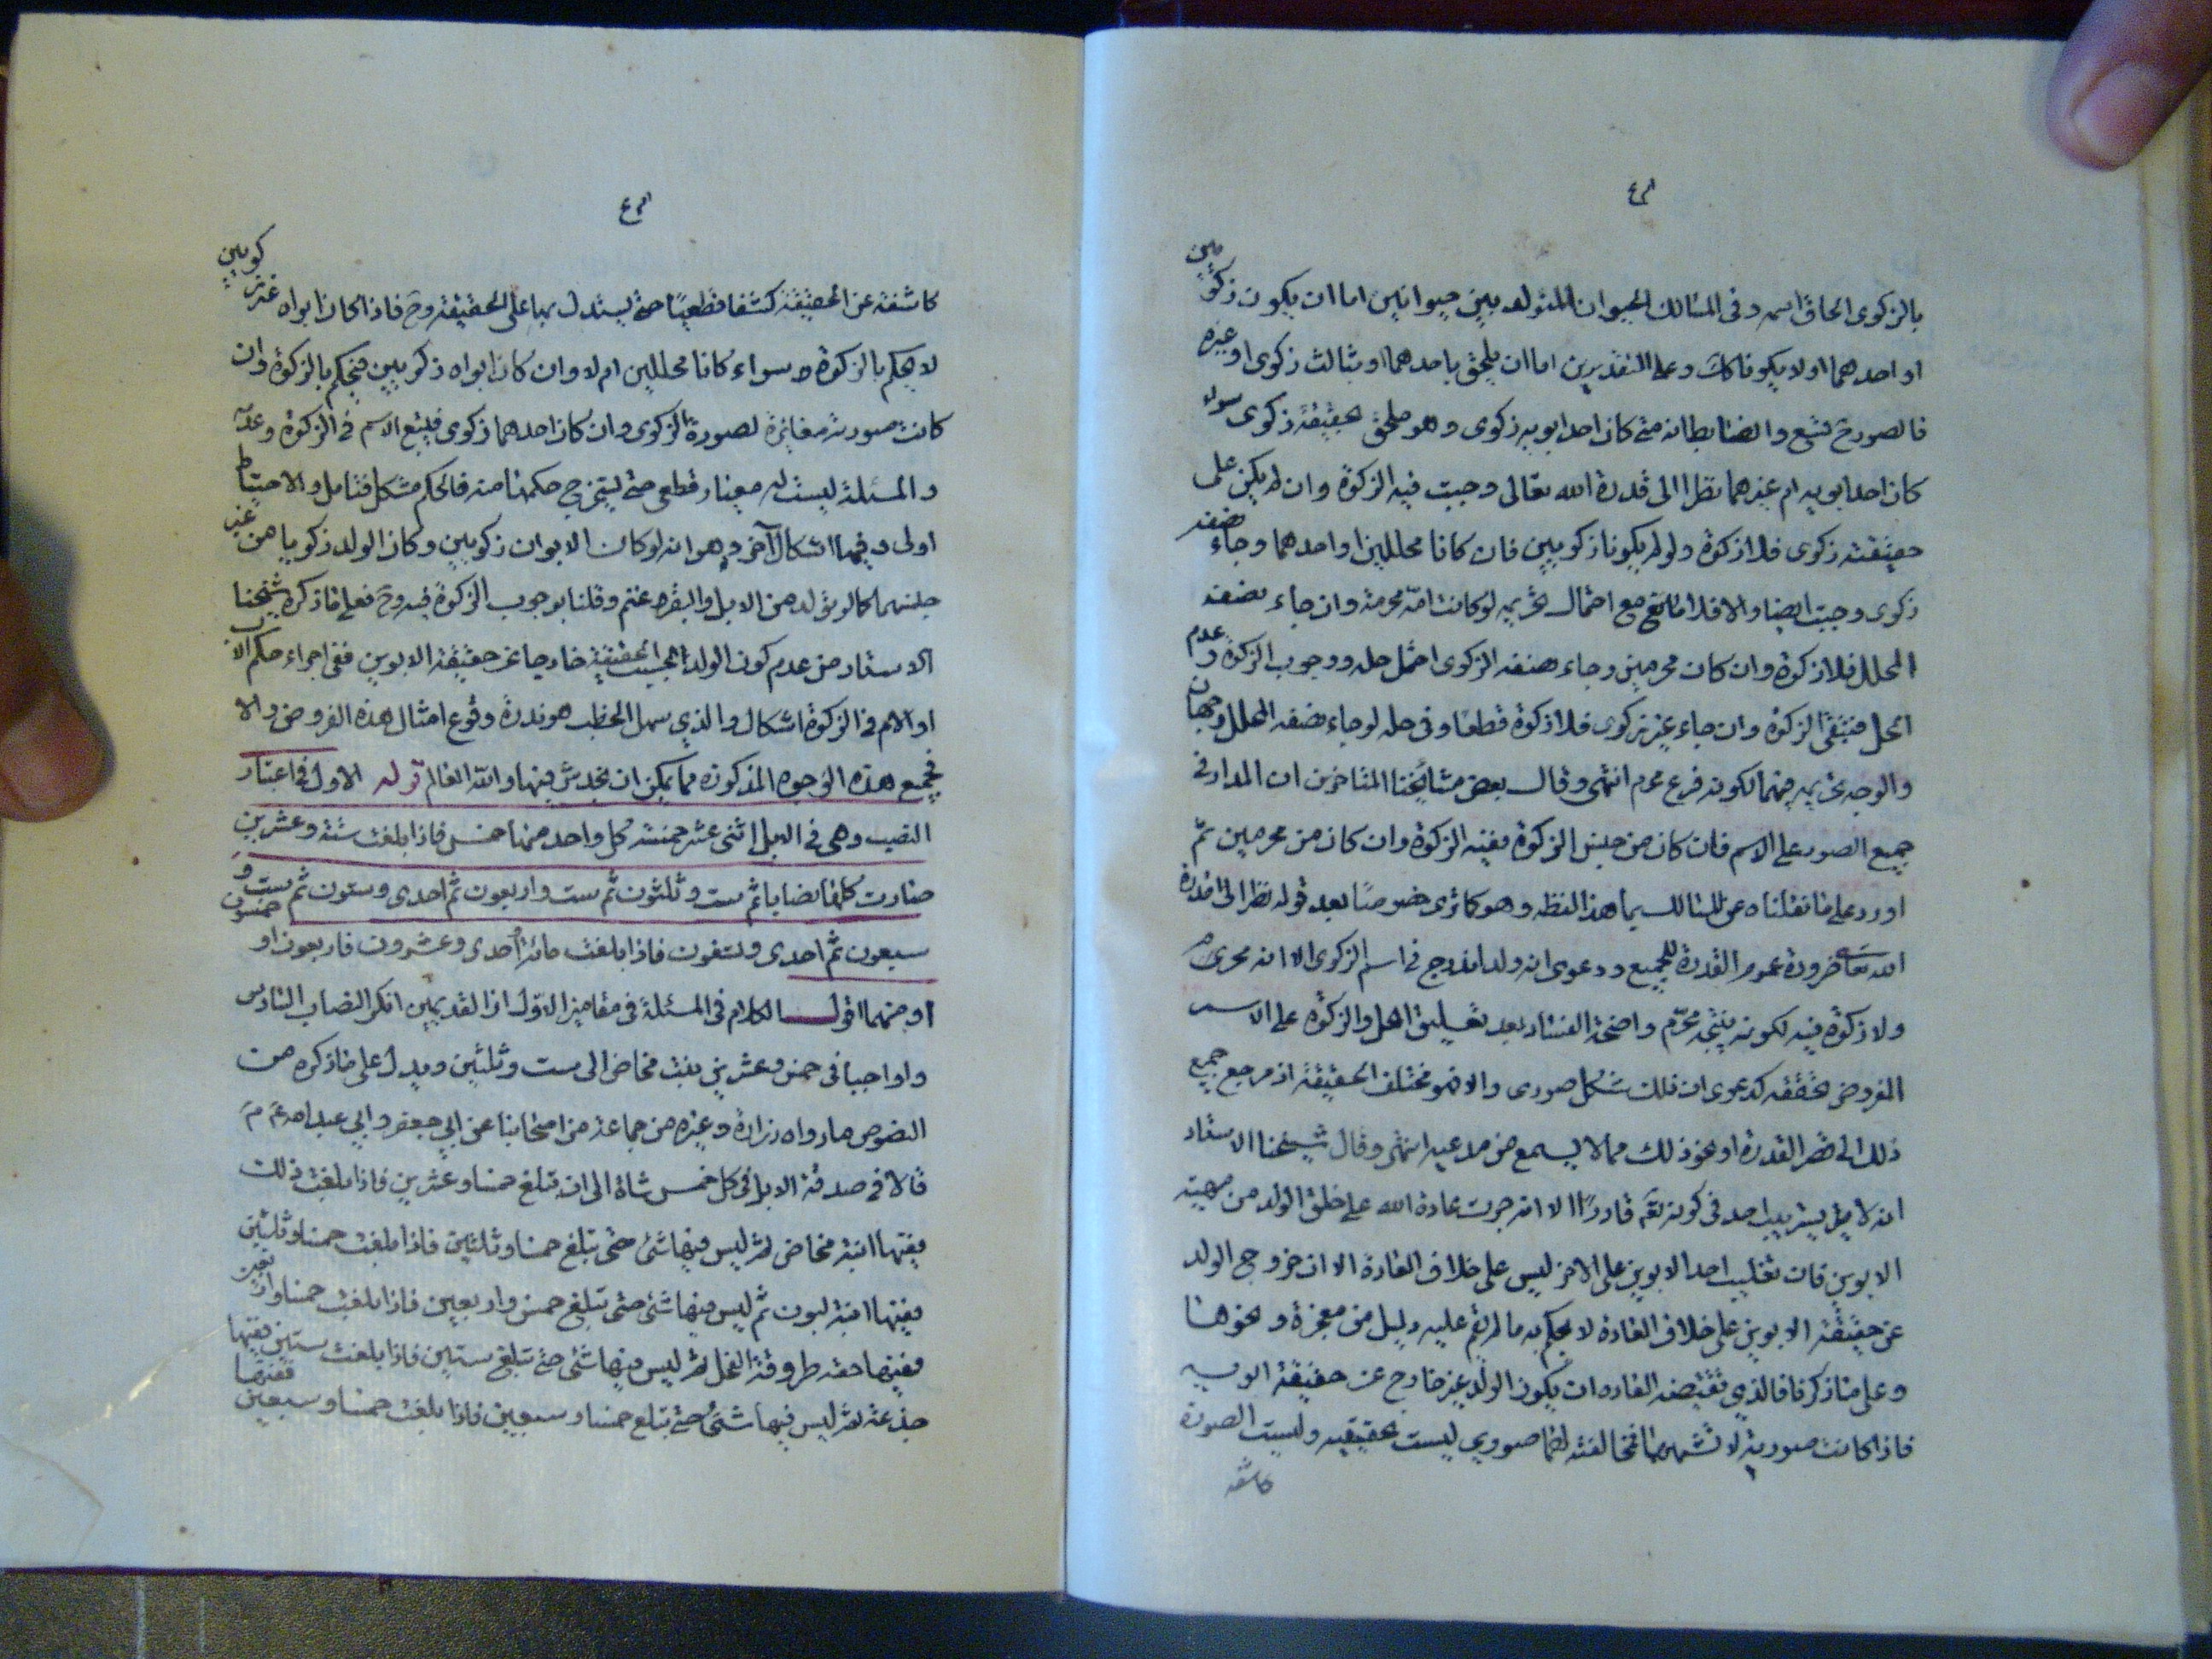 بالزكوى الحاقا اسمه وفى المسالك الحيوان المتولد بين حيوانين اما ان يكون زكويين
او احدهما اولا يكونا كك وعلى التقديرين اما ان يلحق باحدهما او بثالث زكوى او غيره
فالصور تسع والضابط انه متى كان احد ابويه زكوى وهو ملحق بحقيقة زكوى سواء
كان احد ابويه ام غيرهما نظرا الى قدرة الله تعالى وجبت فيه الزكوة وان لم يكن على
حقيقة زكوى فلا زكوة ولو لم يكونا زكويين فان كانا محللين او احدهما وجاء بصفة
زكوى وجبت ايضا والا فلا مع احتمال تحريمه لو كانت امه محرمة وان جاء بصفة
المحلل فلا زكوة وان كان محرمين وجاء بصفة الزكوى احتمل حله ووجوب الزكوة وعدم
الحل فتنتفى الزكوة وان جاء غير زكوى فلا زكوة قطعا وفى حله لو جاء بصفة المحلل وجهان
والوجه تحريمه فيهما لكونه فرع محرم انتهى وقال بعض مشايخنا المتاخرين ان المدار فى
جميع الصور على الاسم فان كان من جنس الزكوة ففيه الزكوة وان كان من محرمين ثم
اورد على ما نقلناه عن المسالك بما هذا لفظه وهو كما ترى خصوصا بعد قوله نظرا الى قدرة
الله تعالى ضرورة عموم القدرة للجميع ودعوى انه ولد اندرج فى اسم الزكوى الا انه محرم
ولا زكوة فيه لكونه نتيجة محرم واضحة الفساد بعد تعليق الحل والزكوة على الاسم
المفروض تحققه كدعوى ان ذلك شكل صورى والا فهو مختلف الحقيقة اذ مرجع جميع
ذلك الى قصر القدرة او نحو ذلك مما لا يسمع من مدعيه انتهى وقال شيخنا الاستاد
انه لا يستريب احد فى كونه تعالى قادرا الا انه جرت عادة الله على خلق الولد من مهية
الابوين فان تغليب احد الابوين على الاخر ليس على خلاف العادة الا ان خروج الولد
عن حقيقة الابوين على خلاف العادة لا يحكم به ما لم يقم عليه دليل من معجزة ونحوها
وعلى ما ذكرنا فالذي تقتضيه العادة ان يكون الولد غير خارج عن حقيقة ابويه
فاذا كانت صورية لا تشبههما فمخالفته لهما صوري ليست بحقيقية وليست الصورة
كاشفة
كاشفة عن الحقيقة كشفا قطعيا حتى يستدل بها على الحقيقة وح فاذا كان ابواه غير زكويين
لا يحكم بالزكوة سواء كانا محللين ام لا وان كان ابواه زكويين فيحكم بالزكوة وان
كانت صورته مغايرة لصورة الزكوى وان كان احدهما زكوى فليتبع الاسم فى الزكوة وعدمه
والمسئلة ليست لها معيار قطعى حتى يستخرج حكمها منه فالحكم مشكل فتامل والاحتياط
اولى وفيها اشكال آخر وهو انه لو كان الابوان زكويين وكان الولد زكويا من غير
جنسهما كما لو تولد من الابل والبقر غنم وقلنا بوجوب الزكوة فيه وح فعلى ما ذكره شيخنا
الاستاد من عدم كون الولد بحسب الحقيقة خارجا عن حقيقة الابوين ففى اجراء حكم الاب
او الام فى الزكوة اشكال والذي يسهل الخطب هو ندرة وقوع امثال هذه الفروض والا
فجميع هذه الوجوه المذكورة مما يمكن ان يخدش فيها والله العالم قوله الاول فى اعتبار
النصب وهى فى الابل اثنى عشر خمسة كل واحد منها خمس فاذا بلغت ستة وعشرين
صارت كلها نصابا ثم ست وثلثون ثم ست واربعون ثم احدى وستون ثم ست و
سبعون ثم احدى وتسعون فاذا بلغت مائة واحدى وعشرون فاربعون او خمسون
او منهما اقول الكلام فى المسئلة فى مقامين الاول ان القديمين انكر النصاب السادس
واوجبا فى خمس وعشرين بنت مخاض الى ست وثلثين ويدل على ما ذكره من
النصوص ما رواه زرارة وغيره من جماعة من اصحابنا عن ابي جعفر وابي عبد الله ع م
قالا فى صدقة الابل فى كل خمس شاة الى ان تبلغ خمسا وعشرين فاذا بلغت ذلك
ففيها ابنة مخاض ثم ليس فيها شئ حتى تبلغ خمسا وثلثين فاذا بلغت خمسا وثلثين
ففيها ابنة لبون ثم ليس فيها شئ حتى تبلغ خمس واربعين فاذا بلغت خمسا واربعين
ففيها حقة طروقة الفحل ثم ليس فيها شئ حتى تبلغ ستين فاذا بلغت ستين ففيها
جذعة ثم ليس فيها شئ حتى تبلغ خمسا وسبعين فاذا بلغت خمسا وسبعين ففيها